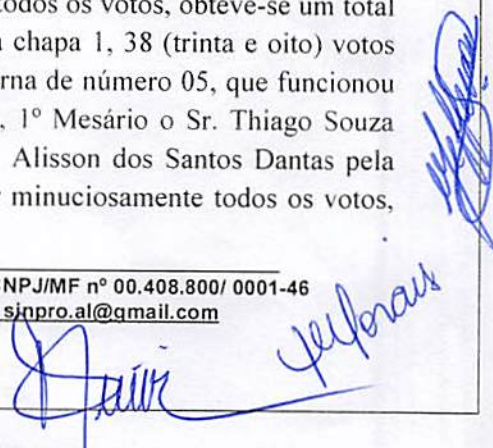 todos os votos, obteve-se um total
chapa 1, 38 (trinta e oito) votos
rna de número 05, que funcionou
, 1º Mesário o Sr. Thiago Souza
Alisson dos Santos Dantas pela
minuciosamente todos os votos,
NPJ/MF nº 00.408.800/ 0001-46
sinpro.al@gmail.com